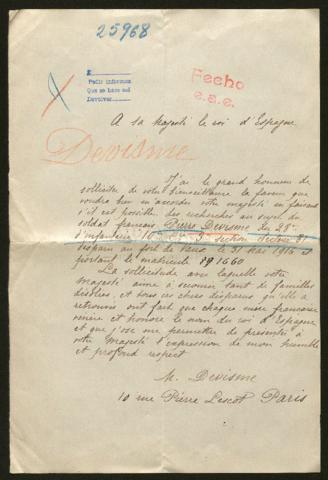 25968
Pedir informes
Que se hace mal
Devolver
Fecho
e.e.e.
A sa Majesté le roi d'Espagne
Devisme
J'ai le grand honneur de
solliciter de votre bienveillance la faveur que
voudra bien m'accorder votre majesté en faisant
s'il est possible des recherches au sujet du
soldat français Pierre Devisme du 28e
d'infanterie 10e Cie 3e section
disparu au fort de Vaux mai 1916 et
portant le matricule 1660
La sollicitude avec laquelle votre
Majesté aime à secourir tant de familles
désolées, et tous ces chers disparus qu'elle a
retrouvés ont fait que chaque mère française
vénère et honore le nom du roi d'Espagne
et que j'ose me permettre de présenter à
votre Majesté l'expression de mon humble
et profond respect
M. Devisme
10 rue Pierre Lescot Paris